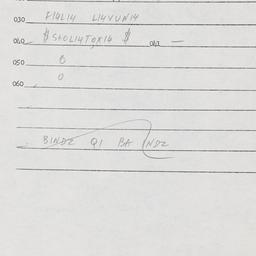 030 F14L14 L14VUN14
040 $ StOL14TOX16 $ 043 —
050 6
0
060
BINDZ QI BA INDZ